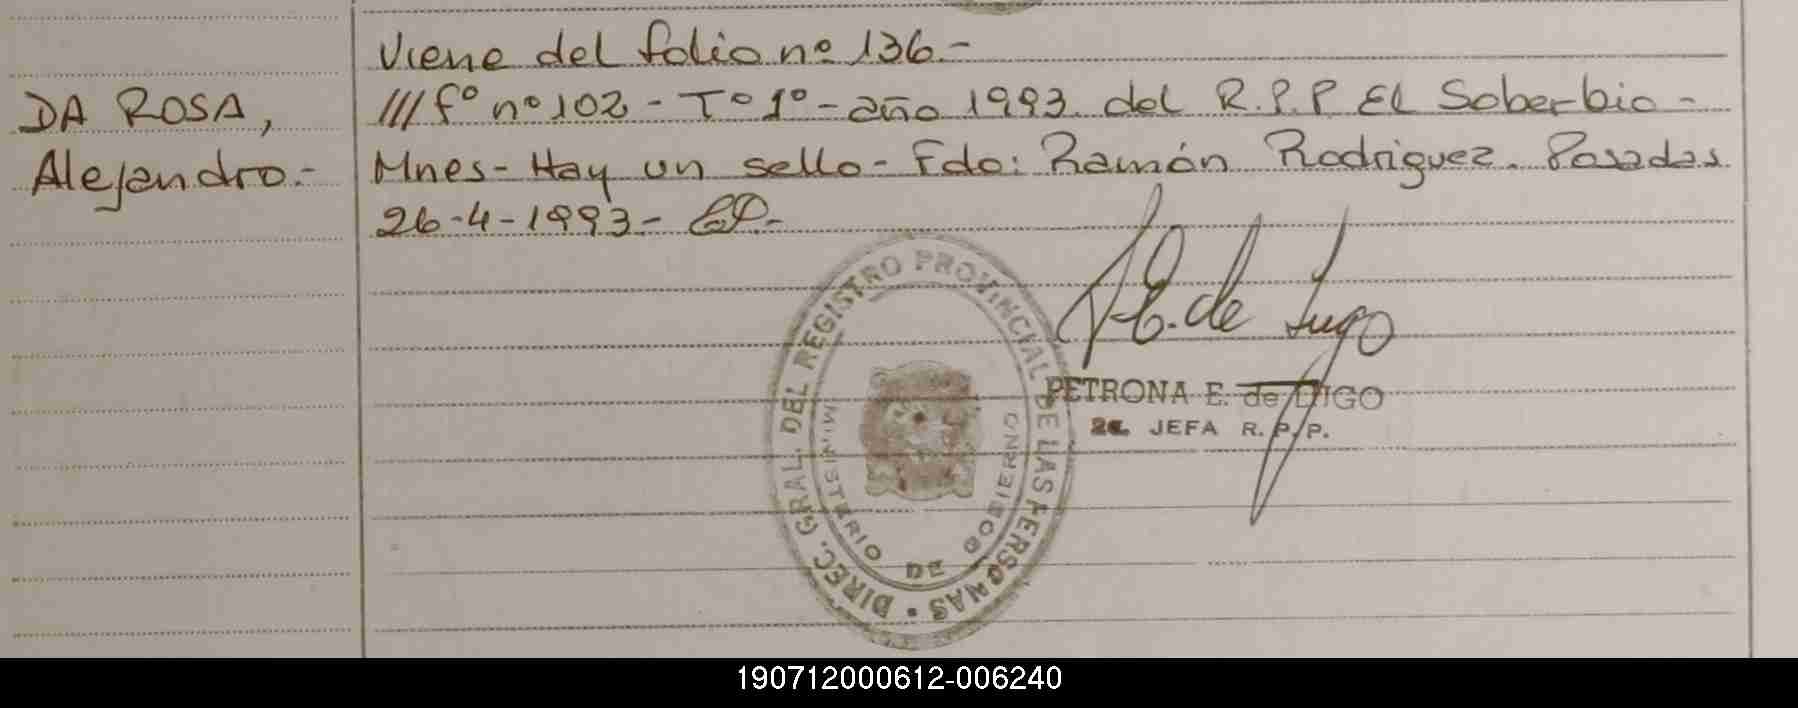 Viene del folio nº 136.-
DA ROSA,
Alejandro.-
/// fº nº 102 - Tº 1º - año 1993. del R.P.P. El Soberbio -
Mnes - Hay un sello - Fdo: Ramón Rodriguez. Posadas
26-4-1993 -
DIREC. GRAL. DEL REGISTRO PROVINCIAL DE LAS PERSONAS
MINISTERIO DE GOBIERNO
E. de Lugo
PETRONA E. de LUGO
JEFA R. P. P.
190712000612-006240